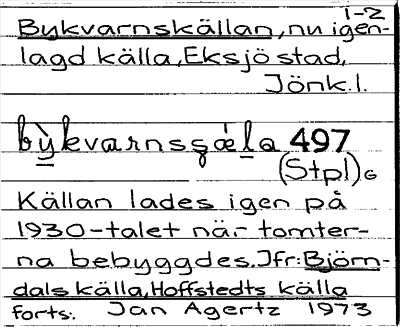 1-2
Bykvarnskällan, nu igen-
lagd källa, Eksjö stad,
Jönk.l.
bỳkvarnsʂǽla 497
(Stpl)G
Källan lades igen på
1930-talet när tomter-
na bebyggdes. Jfr: Björn-
dals källa, Hoffstedts källa
forts. Jan Agertz 1973